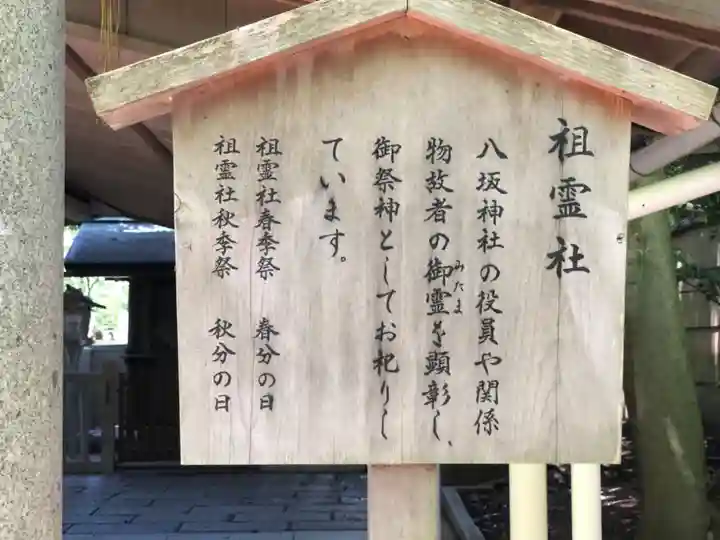 祖霊社
八坂神社の役員や関係
物故者の御霊を顕彰し、
みたま
御祭神としてお祀りし
ています。
祖霊社春季祭 春分の日
祖霊社秋季祭 秋分の日